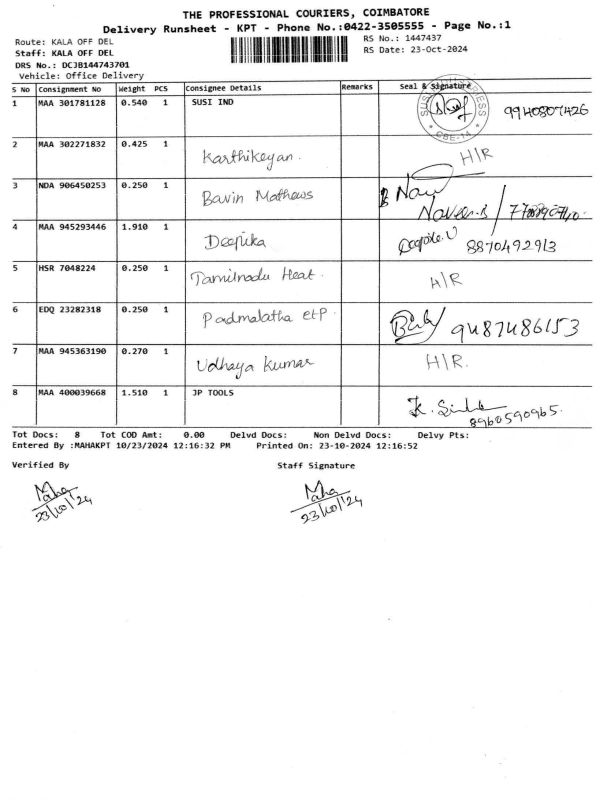 THE PROFESSIONAL COURIERS, COIMBATORE
Delivery Runsheet - KPT - Phone No.:0422-3505555 - Page No.:1
Route: KALA OFF DEL RS No.: 1447437
Staff: KALA OFF DEL RS Date: 23-Oct-2024
DRS No.: DCJB144743701
Vehicle: Office Delivery
S No Consignment No Weight PCS Consignee Details Remarks Seal & Signature
1 MAA 301781128 0.540 1 SUSI IND 9940807426
CBE-14
2 MAA 302271832 0.425 1 Karthikeyan. H/R
3 NDA 906450253 0.250 1 Bavin Mathews
Naveen.B
4 MAA 945293446 1.910 1 Deepika Deepike.U 8870492913
5 HSR 7048224 0.250 1 Tamilnadu Heat. H/R
6 EDQ 23282318 0.250 1 Padmalatha etp 9487486153
7 MAA 945363190 0.270 1 Udhaya Kumar H/R.
8 MAA 400039668 1.510 1 JP TOOLS
8960590965.
Tot Docs: 8 Tot COD Amt: 0.00 Delvd Docs: Non Delvd Docs: Delvy Pts:
Entered By :MAHAKPT 10/23/2024 12:16:32 PM Printed On: 23-10-2024 12:16:52
Verified By Staff Signature
Maha Maha
23/10/'24 23/10/'24